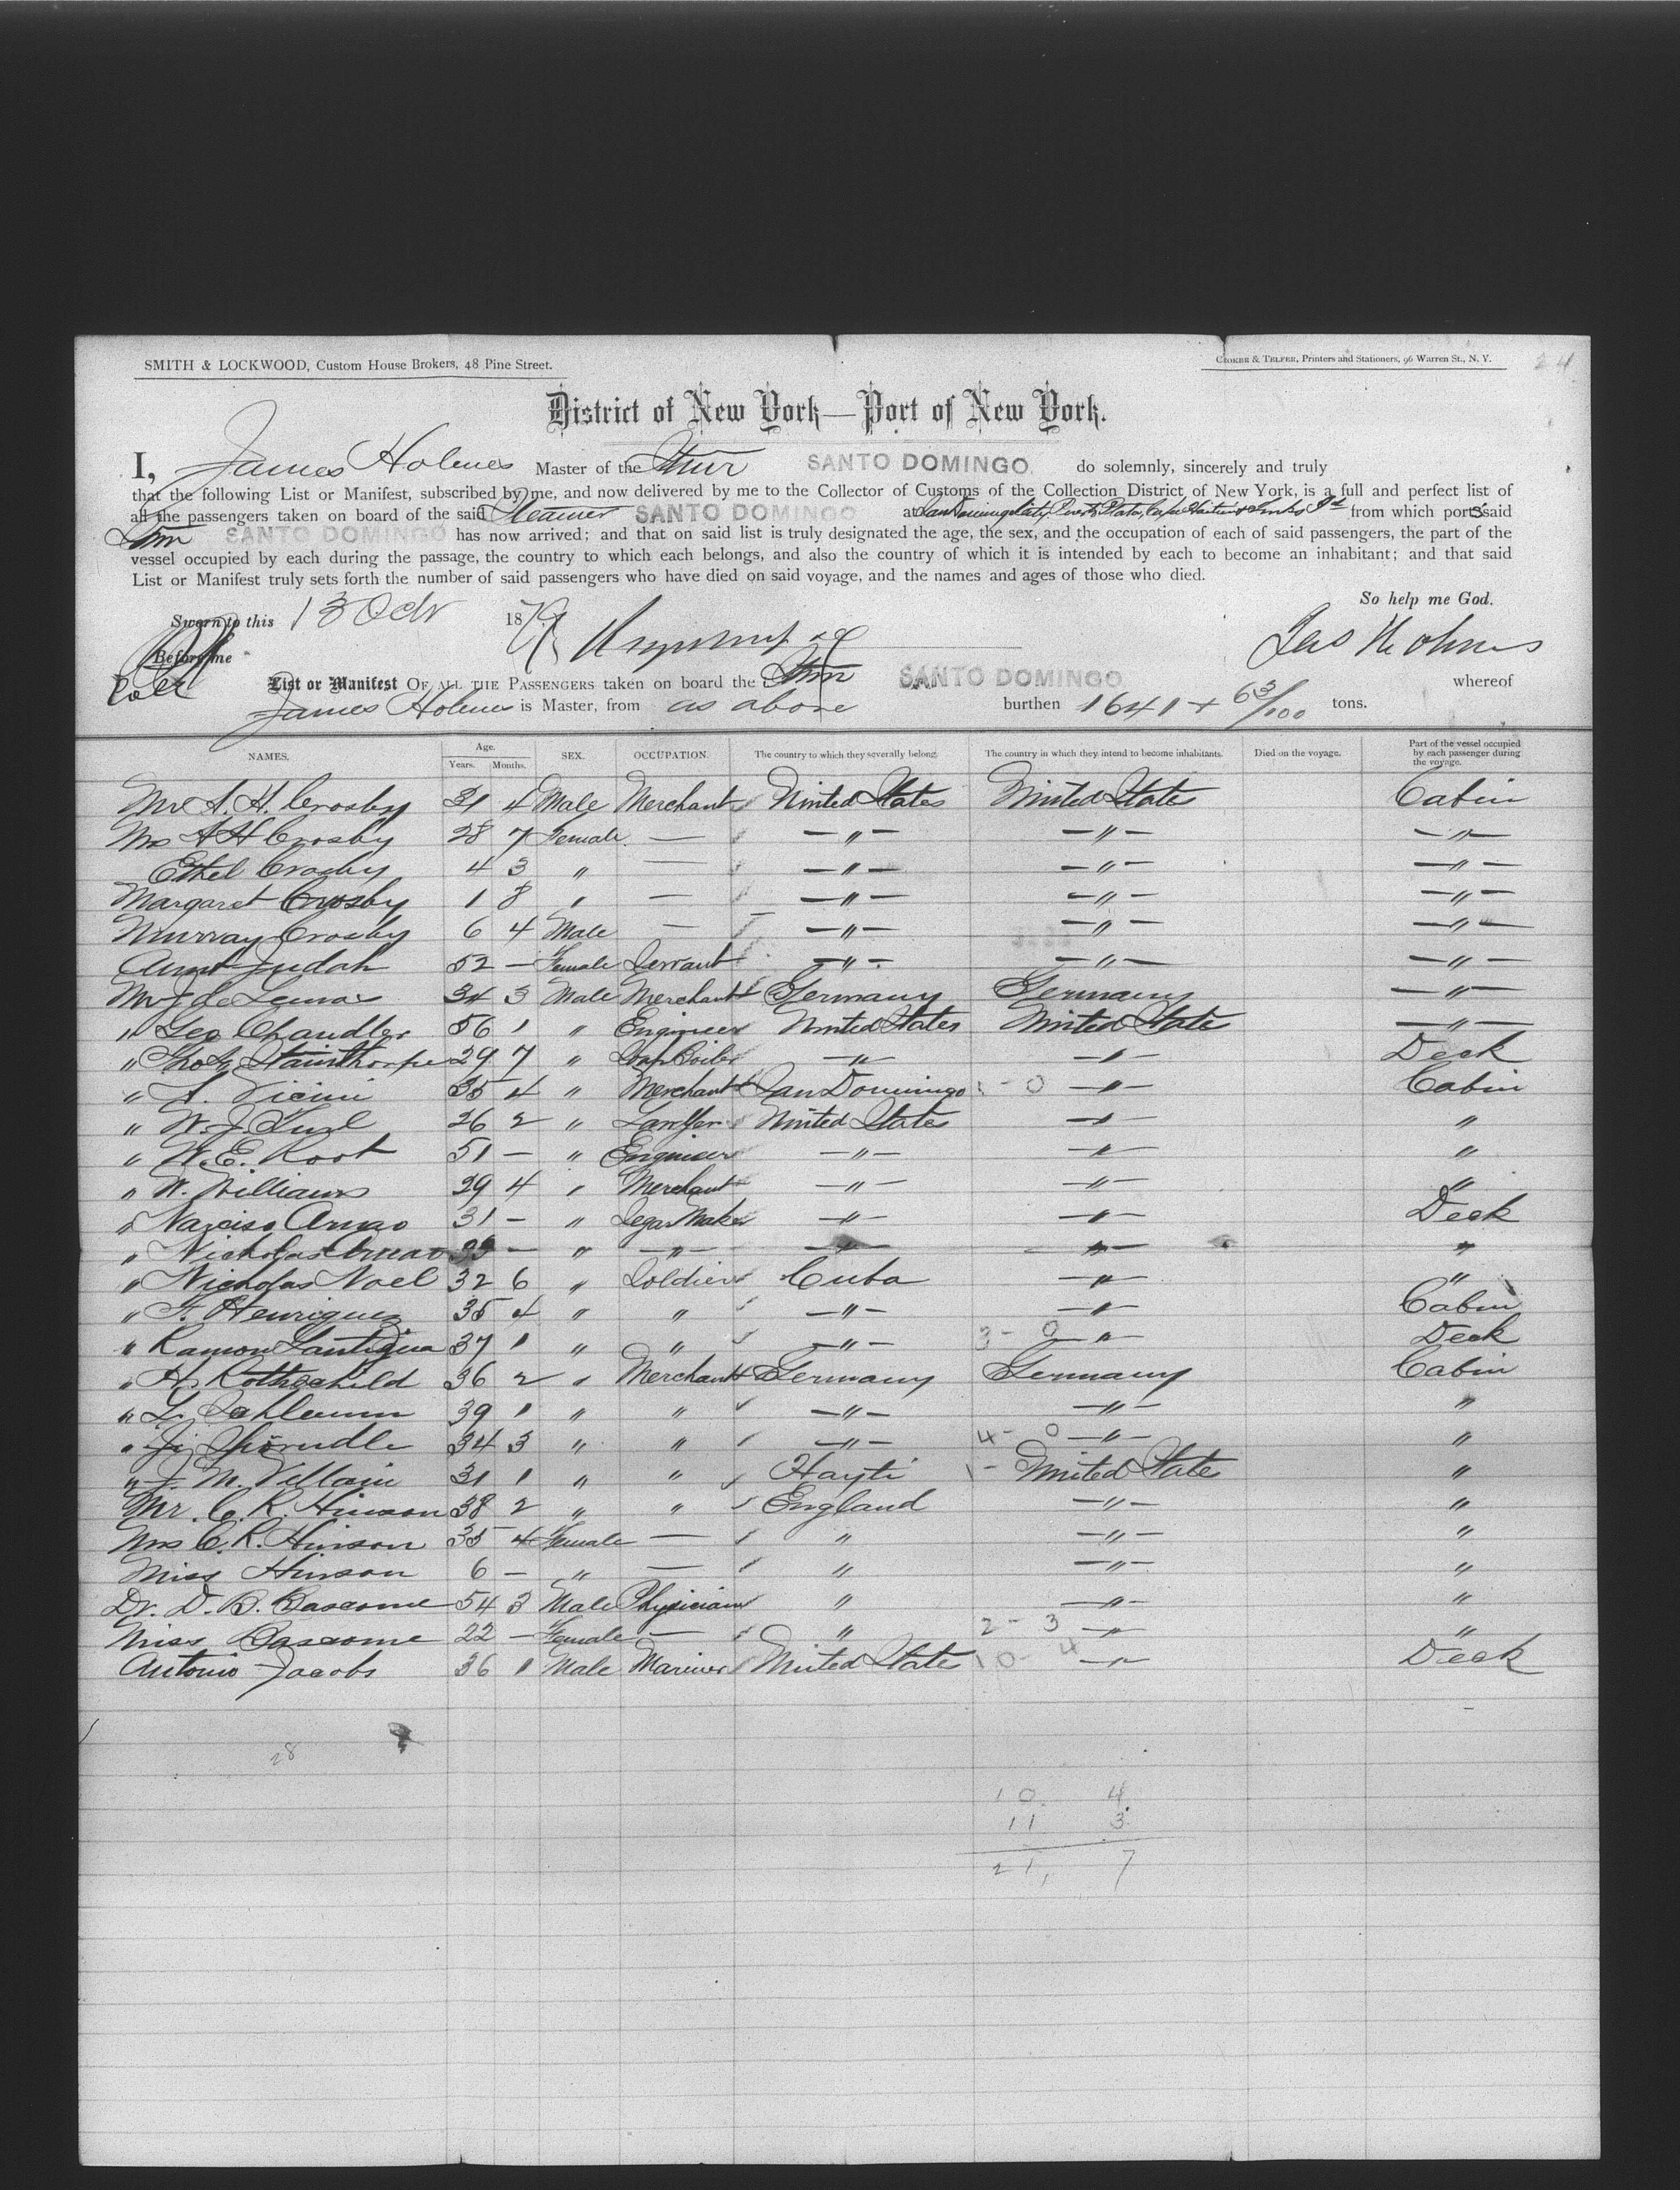 24
SMITH & LOCKWOOD, Custom House Brokers, 48 Pine Street.
CROKER & TELFER, Printers and Stationers, 96 Warren St., N. Y.
District of New York—Port of New York.
I, James Holmes Master of the Stmr SANTO DOMINGO do solemnly, sincerely and truly
that the following List or Manifest, subscribed by me, and now delivered by me to the Collector of Customs of the Collection District of New York, is a full and perfect list of
all the passengers taken on board of the said Steamer SANTO DOMINGO at San Domingo City, Puerto Plata, Cape Haitien & Turks Id from which ports said
Stmr SANTO DOMINGO has now arrived; and that on said list is truly designated the age, the sex, and the occupation of each of said passengers, the part of the
vessel occupied by each during the passage, the country to which each belongs, and also the country of which it is intended by each to become an inhabitant; and that said
List or Manifest truly sets forth the number of said passengers who have died on said voyage, and the names and ages of those who died.
So help me God.
Sworn to this 13 Octr 1879
Jas Holmes
Before me
List or Manifest OF ALL THE PASSENGERS taken on board the Stmr SANTO DOMINGO whereof
James Holmes is Master, from as above burthen 1641 + 63/100 tons.
NAMES. Age. Years. Months. SEX. OCCUPATION. The country to which they severally belong. The country in which they intend to become inhabitants. Died on the voyage. Part of the vessel occupied by each passenger during the voyage.
Mr A. H. Crosby 31 4 Male Merchant United States United States Cabin
Mrs A H Crosby 28 7 Female — —"— —"— —"—
Ethel Crosby 4 3 " — —"— —"— —"—
Margaret Crosby 1 8 " — —"— —"— —"—
Murray Crosby 6 4 Male — —"— —"— —"—
Aunt Judah 52 — Female Servant —"— —"— —"—
Mr J de Lemos 34 3 Male Merchant Germany Germany —"—
" Geo Chandler 56 1 " Engineer United States United State —"—
" Thos Stainthorpe 29 7 " Soap Boiler —"— —"— Deck
" A. Vicini 35 4 " Merchant San Domingo 1 - 0 —"— Cabin
" W. J. 26 2 " Lawyer United States —"— "
" W. E. Root 51 — " Engineer —"— —"— "
" W. Williams 29 4 " Merchant —"— —"— "
" Narciso Arnao 31 — " Segar Maker —"— —"— Deck
" Nicholas Arnao 33 — " —"— —"— —"— "
" Nicholas Noel 32 6 " Soldier Cuba —"— "
" F. Henriquez 35 4 " " —"— —"— Cabin
" Ramon Lantigua 37 1 " " —"— 3 - 0 —"— Deck
" H. Rothschild 36 2 " Merchant Germany Germany Cabin
" L. 39 1 " " —"— —"— "
" 34 3 " " —"— 4 - 0 —"— "
" J. M. Villain 31 1 " " Hayti 1 - 0 United States "
Mr. C. R. Hinson 38 2 " " England —"— "
Mrs C. R. Hinson 35 4 Female — " —"— "
Miss Hinson 6 — " — " —"— "
Dr. D. B. Bascome 54 3 Male Physician " —"— "
Miss Bascome 22 — Female — " 2 - 3 —"— "
Antonio Jacobs 36 1 Male Mariner United States 10 - 4 —"— Deck
28
10 4
11 3
21, 7